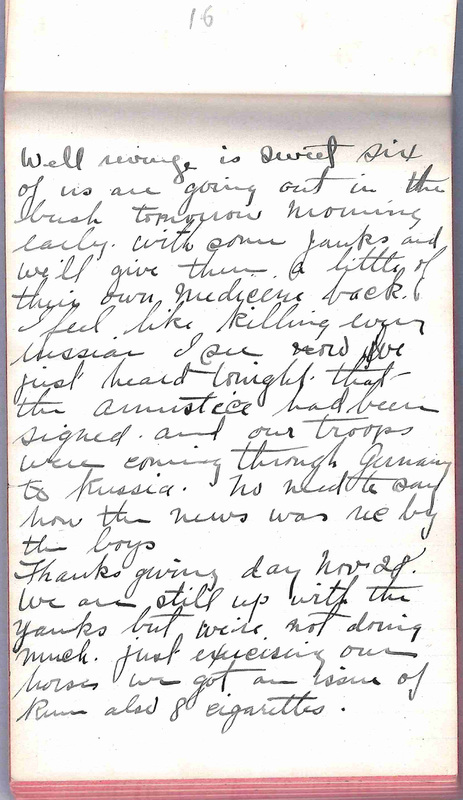 16
Well revenge is sweet six
of us are going out in the
bush tomorrow morning
early. with some Yanks and
we'll give them a little of
their own medicene back.
I feel like killing every
russian I see now We
just heard tonight. that
the armistice had been
signed. and our troops
were coming through Germany
to Russia. No need to say
how the news was rec by
the boys
Thanks giving day Nov 28.
We are still up with the
Yanks but we're not doing
much. just exercising our
horses we got an issue of
Rum also 8 cigarettes.